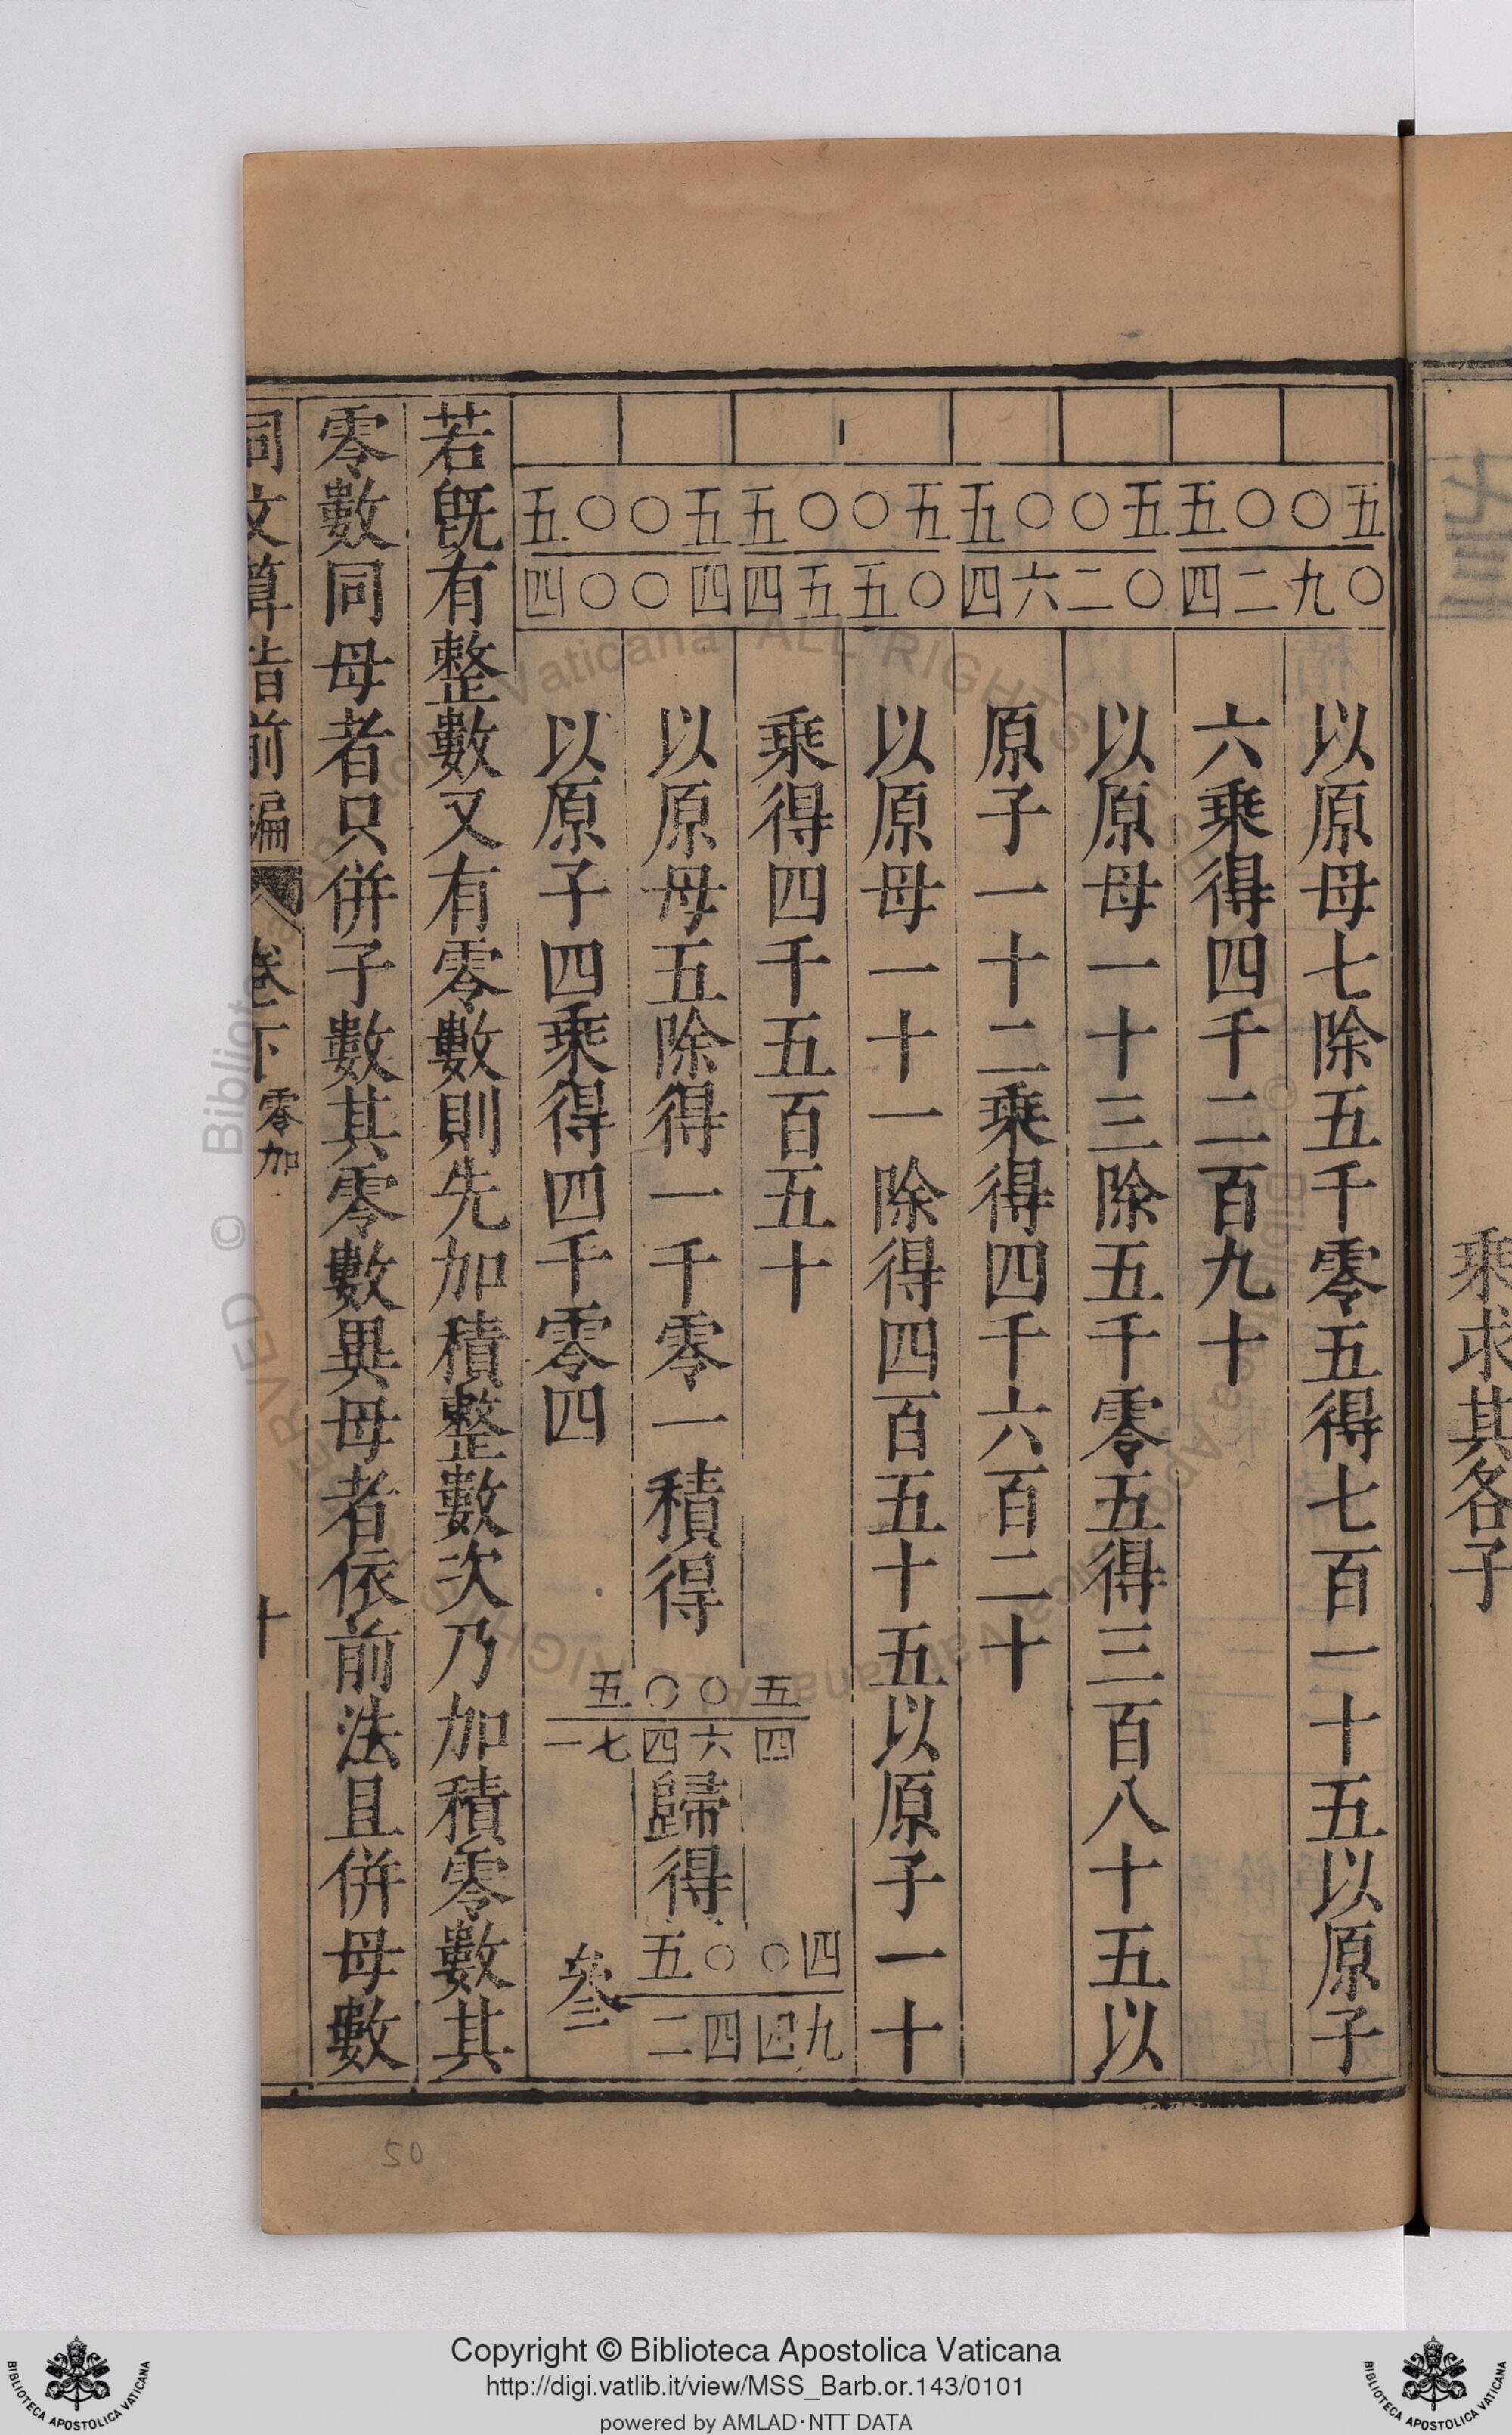 乘求其各子
五〇〇五五〇〇五五〇〇五五〇〇五
四〇〇四四五五〇四六二〇四二九〇
以原母七除五千零五得七百一十五以原子
六乘得四千二百九十
以原母一十三除五千零五得三百八十五以
原子一十二乘得四千六百二十
以原母一十一除得四百五十五以原子一十
乘得四千五百五十
以原母五除得一千零一積得
五〇〇五
一七四六四
歸得
叄
五〇〇四
二四四九
以原子四乘得四千零四
若旣有整數又有零數則先加積整數次乃加積零數其
零數同母者只併子數其零數異母者依前法且併母數
同文算指前編 卷下 零加 十
50
Copyright © Biblioteca Apostolica Vaticana
http://digi.vatlib.it/view/MSS_Barb.or.143/0101
powered by AMLAD·NTT DATA
BIBLIOTECA APOSTOLICA VATICANA
BIBLIOTECA APOSTOLICA VATICANA